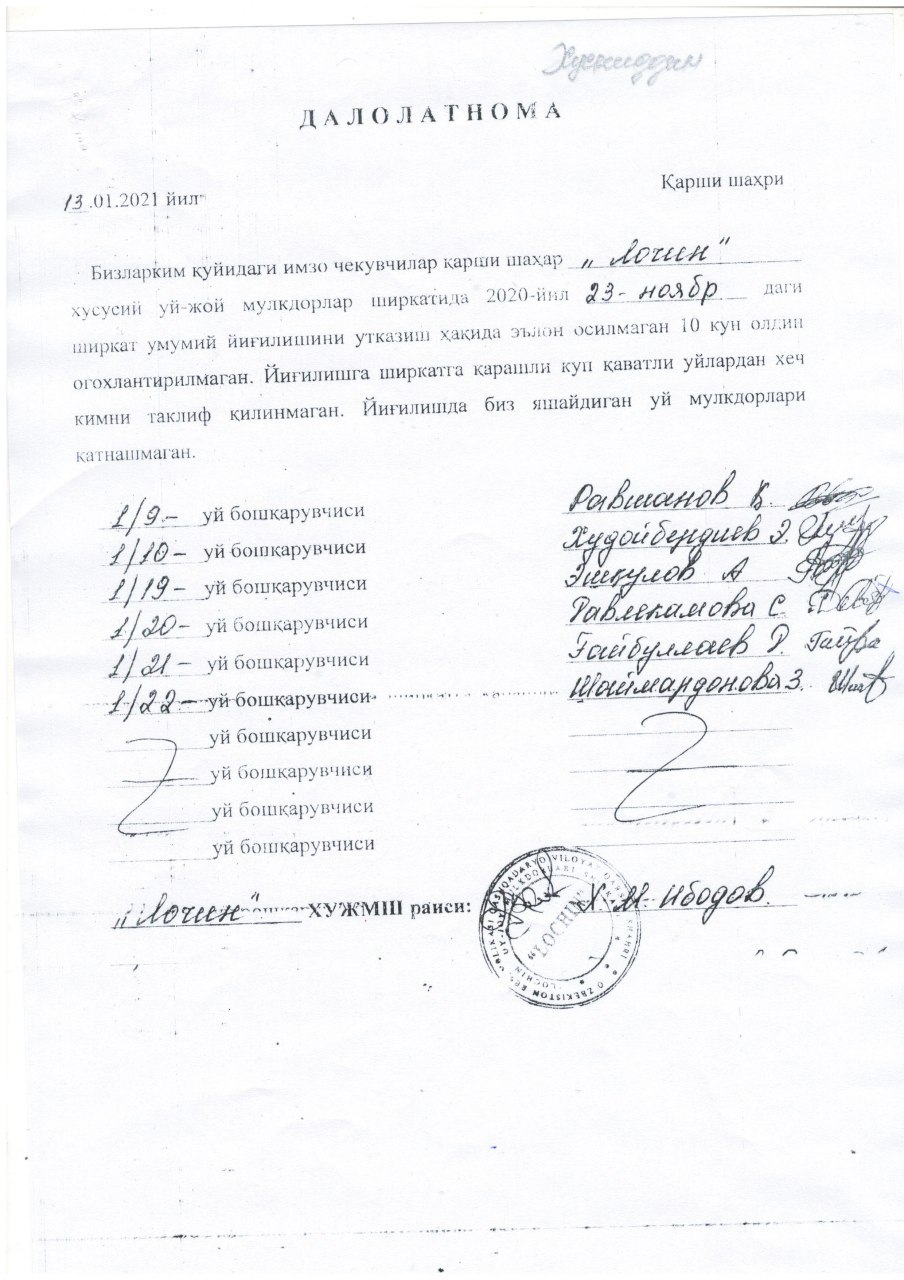 Хусниддин
ДАЛОЛАТНОМА
13.01.2021 йил
Қарши шаҳри
Бизларким қуйидаги имзо чекувчилар қарши шаҳар „Лочин"
хусусий уй-жой мулкдорлар ширкатида 2020-йил 23-ноябр даги
ширкат умумий йиғилишини утказиш ҳақида эълон осилмаган 10 кун олдин
огохлантирилмаган. Йиғилишга ширкатга қарашли куп қаватли уйлардан хеч
кимни таклиф қилинмаган. Йиғилишда биз яшайдиган уй мулкдорлари
қатнашмаган.
1/9- уй бошқарувчиси Равшанов Қ.
1/10- уй бошқарувчиси Худойбердиев Э.
1/19- уй бошқарувчиси Эшқулов А
1/20- уй бошқарувчиси С.
1/21- уй бошқарувчиси Ғайбуллаев Р
1/22- уй бошқарувчиси Шаймардонова З.
уй бошқарувчиси
уй бошқарувчиси
уй бошқарувчиси
уй бошқарувчиси
„Лочин" ХУЖМШ раиси: Х. М. Ибодов.
"LOCHIN"